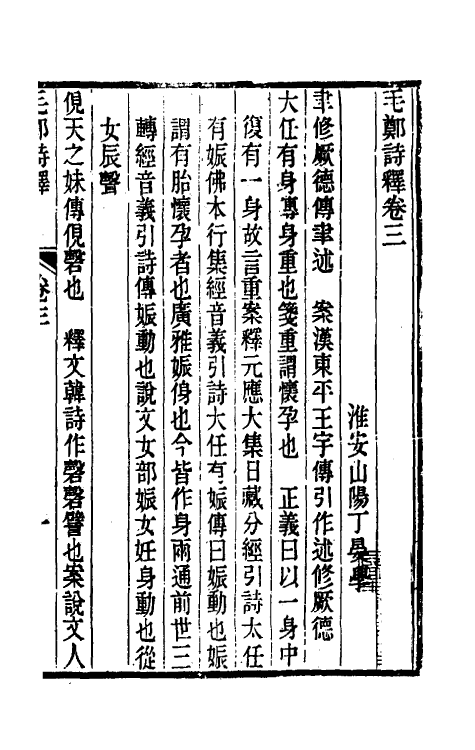 毛鄭詩釋卷三
淮安山陽丁晏學
聿修厥德傳聿述　案漢東平王宇傳引作述修厥德
大任有身專身重也箋重謂懷孕也　正義曰以一身中
復有一身故言重案釋元應大集日藏分經引詩太任
有娠佛本行集經音義引詩大任有娠傳曰娠動也娠
謂有胎懷孕者也廣雅娠㑗也今皆作身兩通前世三
轉經音義引詩傳娠動也說文女部娠女妊身動也從
女辰聲
俔天之妹傳俔磬也　釋文韓詩作磬磬譬也案說文人
毛鄭詩釋　卷三　一